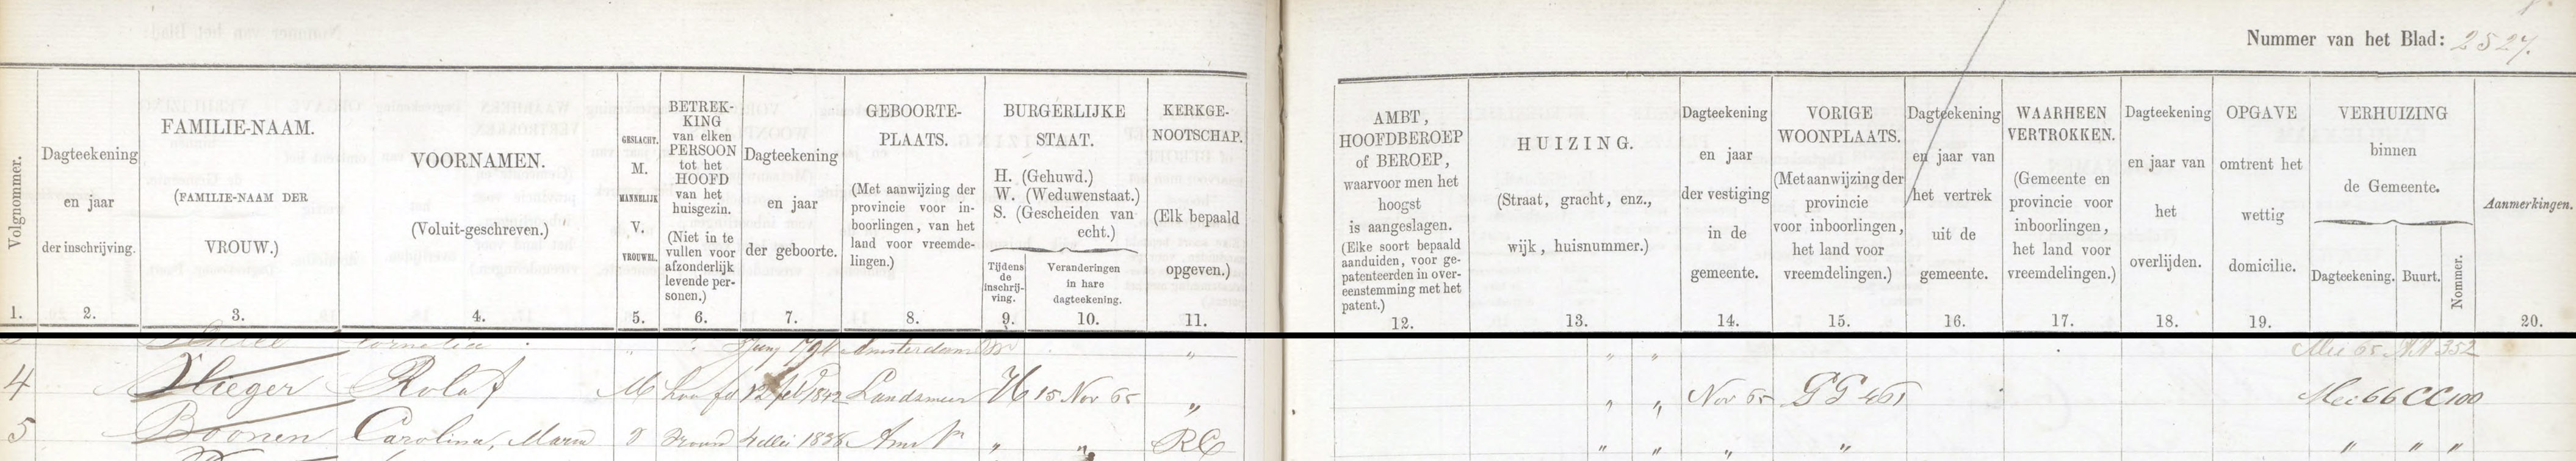 Nummer van het Blad: 2527.
Volgnommer.
1.
Dagteekening
en jaar
der inschrijving.
2.
FAMILIE-NAAM.
(FAMILIE-NAAM DER
VROUW.)
3.
VOORNAMEN.
(Voluit-geschreven.)
4.
GESLACHT.
M.
MANNELIJK
V.
VROUWEL.
5.
BETREK-
KING
van elken
PERSOON
tot het
HOOFD
van het
huisgezin.
(Niet in te
vullen voor
afzonderlijk
levende per-
sonen.)
6.
Dagteekening
en jaar
der geboorte.
7.
GEBOORTE-
PLAATS.
(Met aanwijzing der
provincie voor in-
boorlingen, van het
land voor vreemde-
lingen.)
8.
BURGERLIJKE
STAAT.
H. (Gehuwd.)
W. (Weduwenstaat.)
S. (Gescheiden van
echt.)
Tijdens
de
inschrij-
ving.
9.
Veranderingen
in hare
dagteekening.
10.
KERKGE-
NOOTSCHAP.
(Elk bepaald
opgeven.)
11.
AMBT,
HOOFDBEROEP
of BEROEP,
waarvoor men het
hoogst
is aangeslagen.
(Elke soort bepaald
aanduiden, voor ge-
patenteerden in over-
eenstemming met het
patent.)
12.
HUIZING.
(Straat, gracht, enz.,
wijk, huisnummer.)
13.
Dagteekening
en jaar
der vestiging
in de
gemeente.
14.
VORIGE
WOONPLAATS.
(Met aanwijzing der
provincie
voor inboorlingen,
het land voor
vreemdelingen.)
15.
Dagteekening
en jaar van
het vertrek
uit de
gemeente.
16.
WAARHEEN
VERTROKKEN.
(Gemeente en
provincie voor
inboorlingen,
het land voor
vreemdelingen.)
17.
Dagteekening
en jaar van
het
overlijden.
18.
OPGAVE
omtrent het
wettig
domicilie.
19.
VERHUIZING
binnen
de Gemeente.
Dagteekening.
Buurt.
Nommer.
Aanmerkingen.
20.
Cornelia 1791 Amsterdam " " " Mei 65 352
4 Vlieger Rolof M hoofd 12 feb 1842 Landsmeer H 15 Nov 65 " " " Nov 65 GG 461 Mei 66 CC 100
5 Boonen Carolina, Maria vrouw 4 Mei 1838 Amst " " RC " " " " " " "